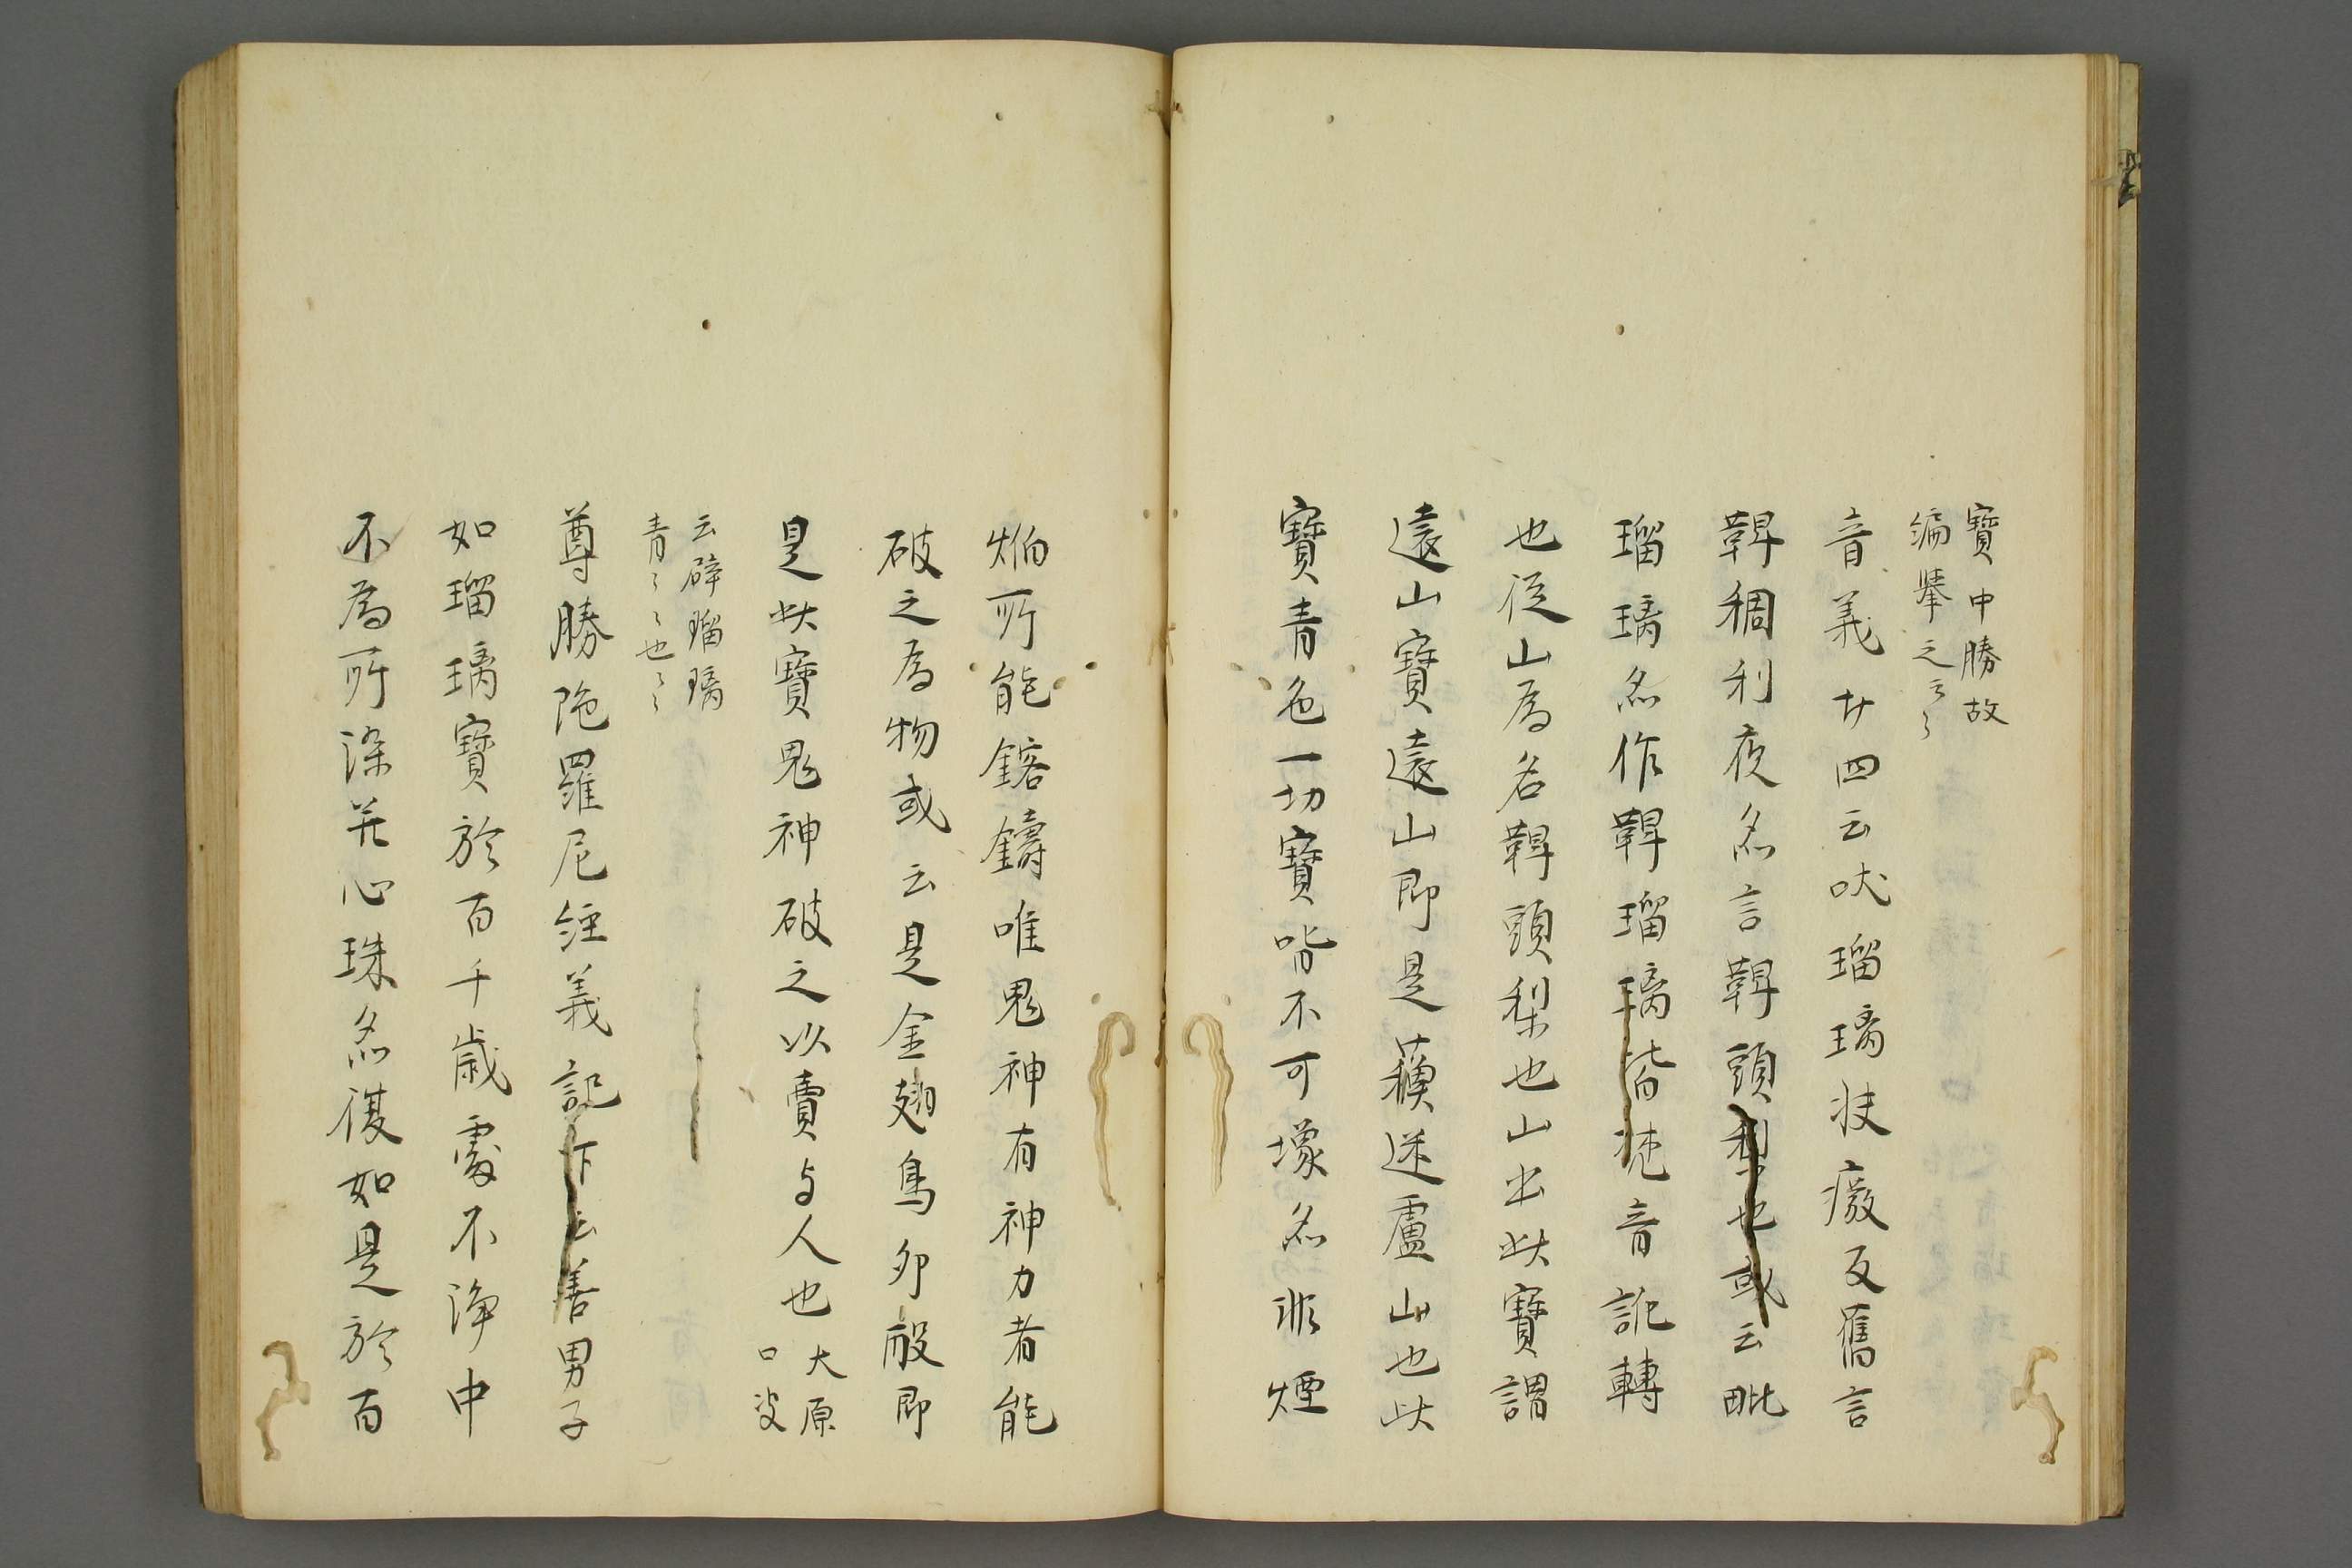 寶中勝故
編擧之云々
音義廿四云吠瑠璃狀癈反舊言
鞞稠利夜亦言鞞頭梨也或云毗
瑠璃亦作鞞瑠璃皆梵音訛轉
也從山爲名鞞頭梨也山出此寶謂
遠山寶遠山即是蘓迷盧山也此
寶青色一切寶皆不可壞亦非煙
焔所能鎔鑄唯鬼神有神力者能
破之爲物或云是金翅鳥卵㲉即
是此寶鬼神破之以賣与人也大原
口决
云碎瑠璃
青々々也々々
尊勝陁羅尼經義記下云善男子
如瑠璃寶於百千歳處不淨中
不爲所染并心珠亦復如是於百